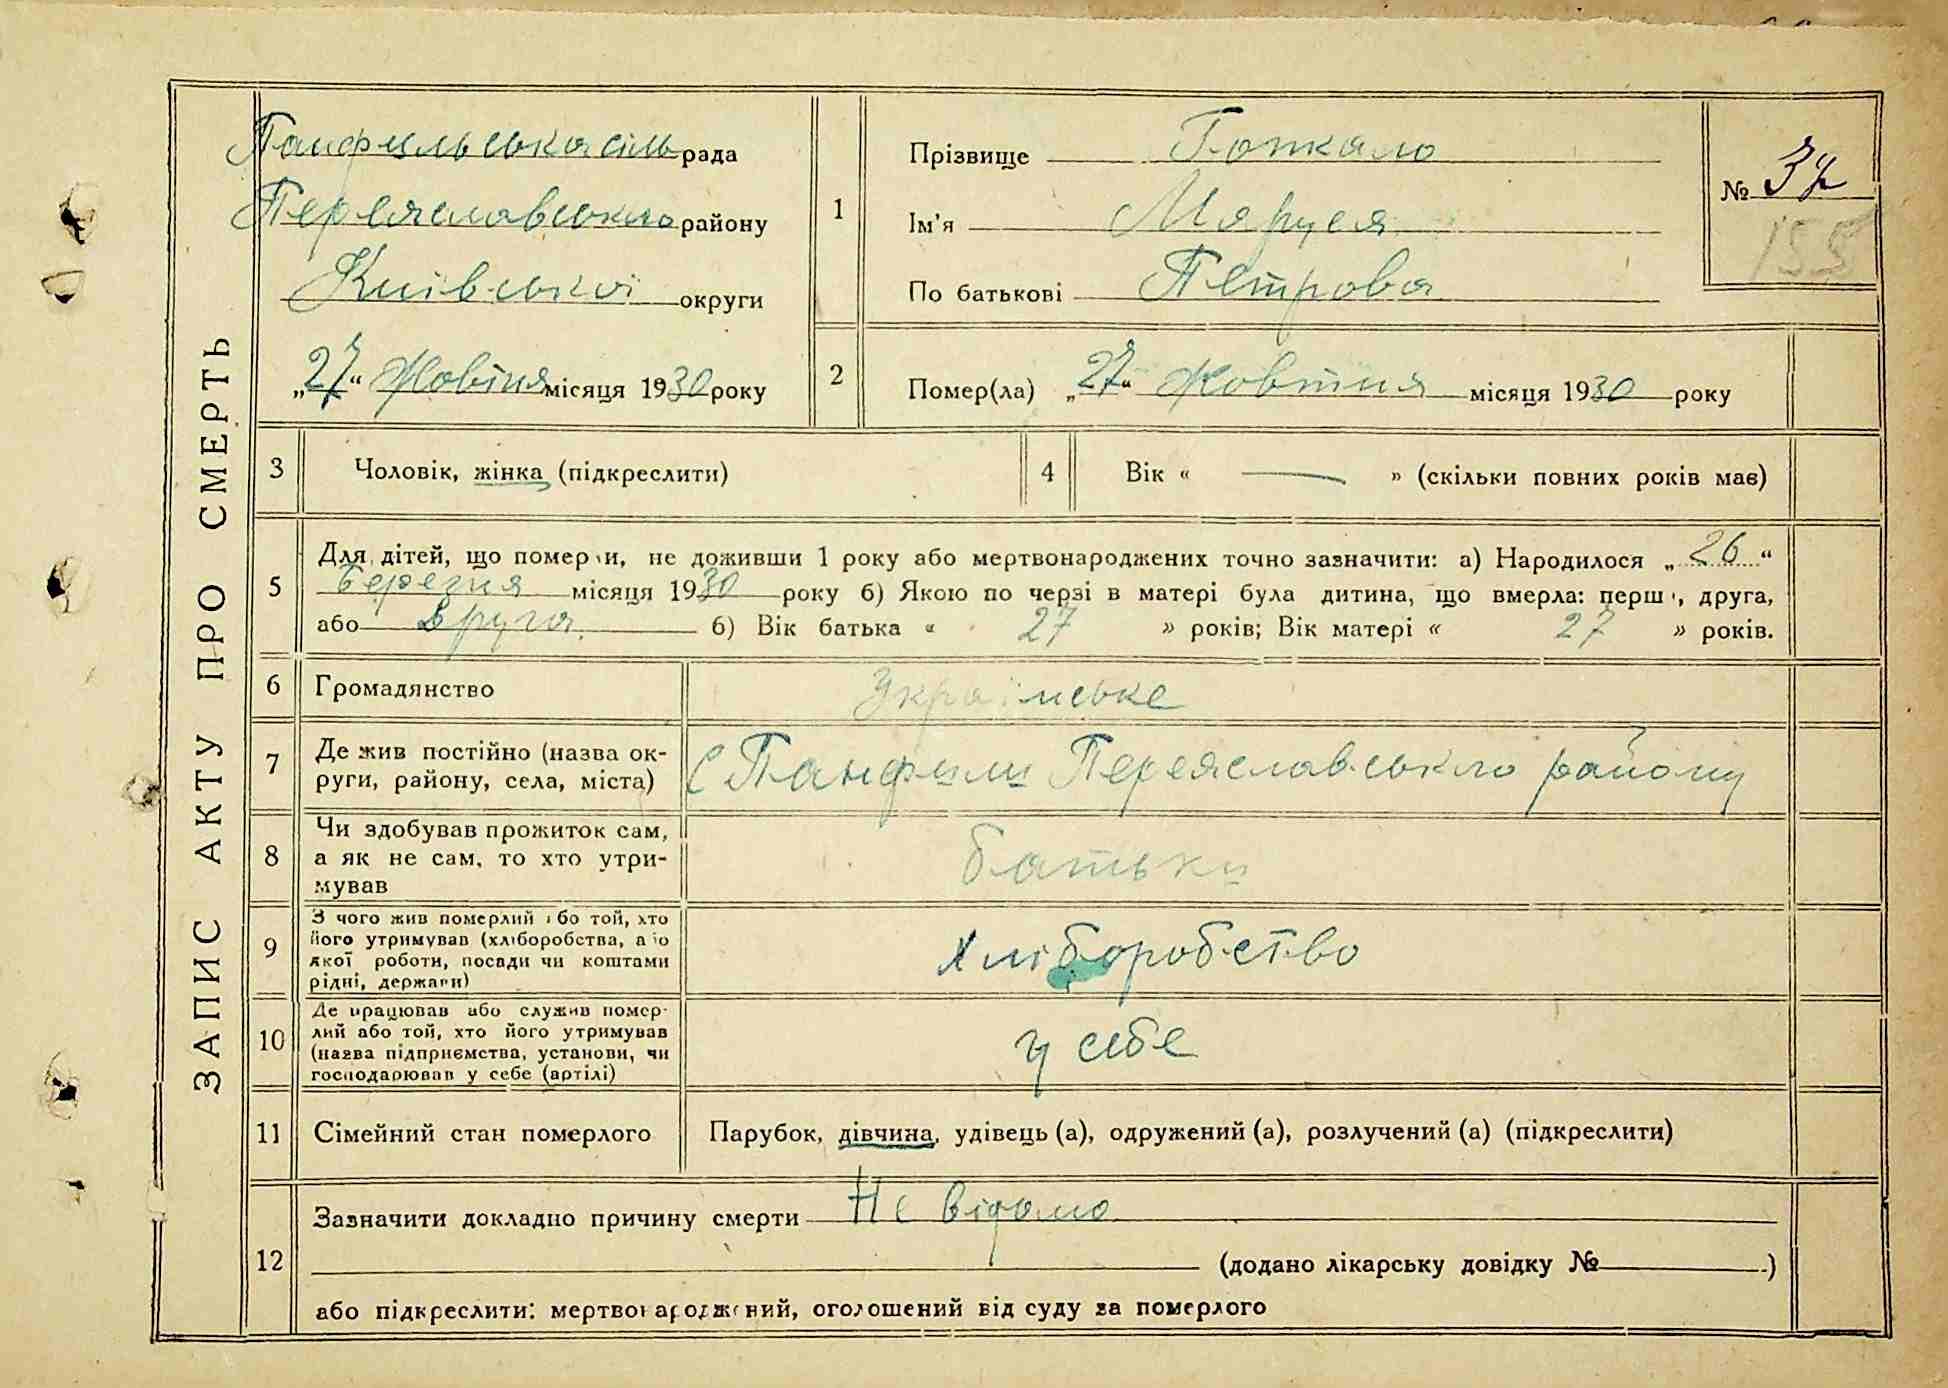 ЗАПИС АКТУ ПРО СМЕРТЬ
Панфильська сіль рада
Переяславського району
Київської округи
„27“ Жовтня місяця 1930 року
1
Прізвище Гопкало
Ім'я Маруся
По батькові Петрова
№ 37
155
2
Помер(ла) „27“ Жовтня місяця 1930 року
3 Чоловік, жінка (підкреслити)
4 Вік « — » (скільки повних років має)
5
Для дітей, що померли, не доживши 1 року або мертвонароджених точно зазначити: а) Народилося „26“
березня місяця 1930 року б) Якою по черзі в матері була дитина, що вмерла: перша, друга,
або друга б) Вік батька « 27 » років; Вік матері « 27 » років.
6 Громадянство Українське
7 Де жив постійно (назва ок-
руги, району, села, міста) с Панфили Переяславського району
8 Чи здобував прожиток сам,
а як не сам, то хто утри-
мував
батьки
9 З чого жив померлий або той, хто
його утримував (хліборобства, або
якої роботи, посади чи коштами
рідні, держави)
хліборобство
10 Де працював або служив помер-
лий або той, хто його утримував
(назва підприємства, установи, чи
господарював у себе (артілі)
у себе
11 Сімейний стан померлого Парубок, дівчина, удівець (а), одружений (а), розлучений (а) (підкреслити)
12
Зазначити докладно причину смерти Не відомо
(додано лікарську довідку № )
або підкреслити: мертвонароджений, оголошений від суду за померлого